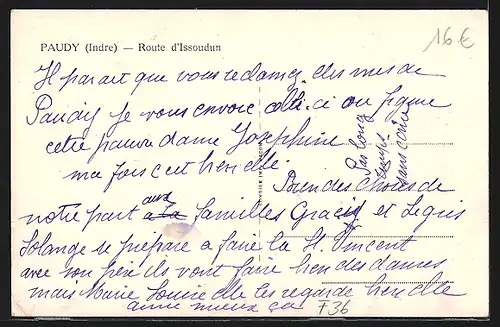 PAUDY (Indre) — Route d'Issoudun
16€
Il parait que vous reclamez des vues de
Paudy je vous envoie celle ci ou figure
cette pauvre dame Josephine
ma fois c'est bien elle
Pas long
temps
sans
Bien des choses de
notre part aux familles Gracy et Legris
Solange se prepare a faire la St. Vincent
avec son père ils vont faire bien des danses
mais Marie Louise elle les regarde bien elle
aime mieux ça
F36